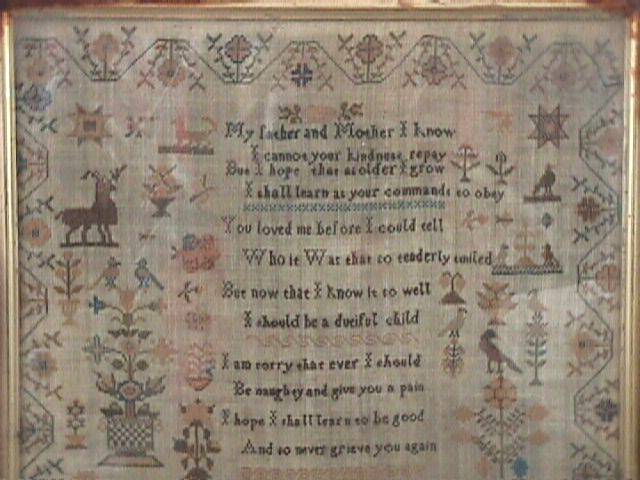 My father and Mother I know
I cannot your kindness repay
But I hope that as older I grow
I shall learn at your commands to obey
You loved me before I could tell
Who it Was that so tenderly smiled
But now that I know it so well
I should be a dutiful child
I am sorry that ever I should
Be naughty and give you a pain
I hope I shall learn to be good
And so never grieve you again